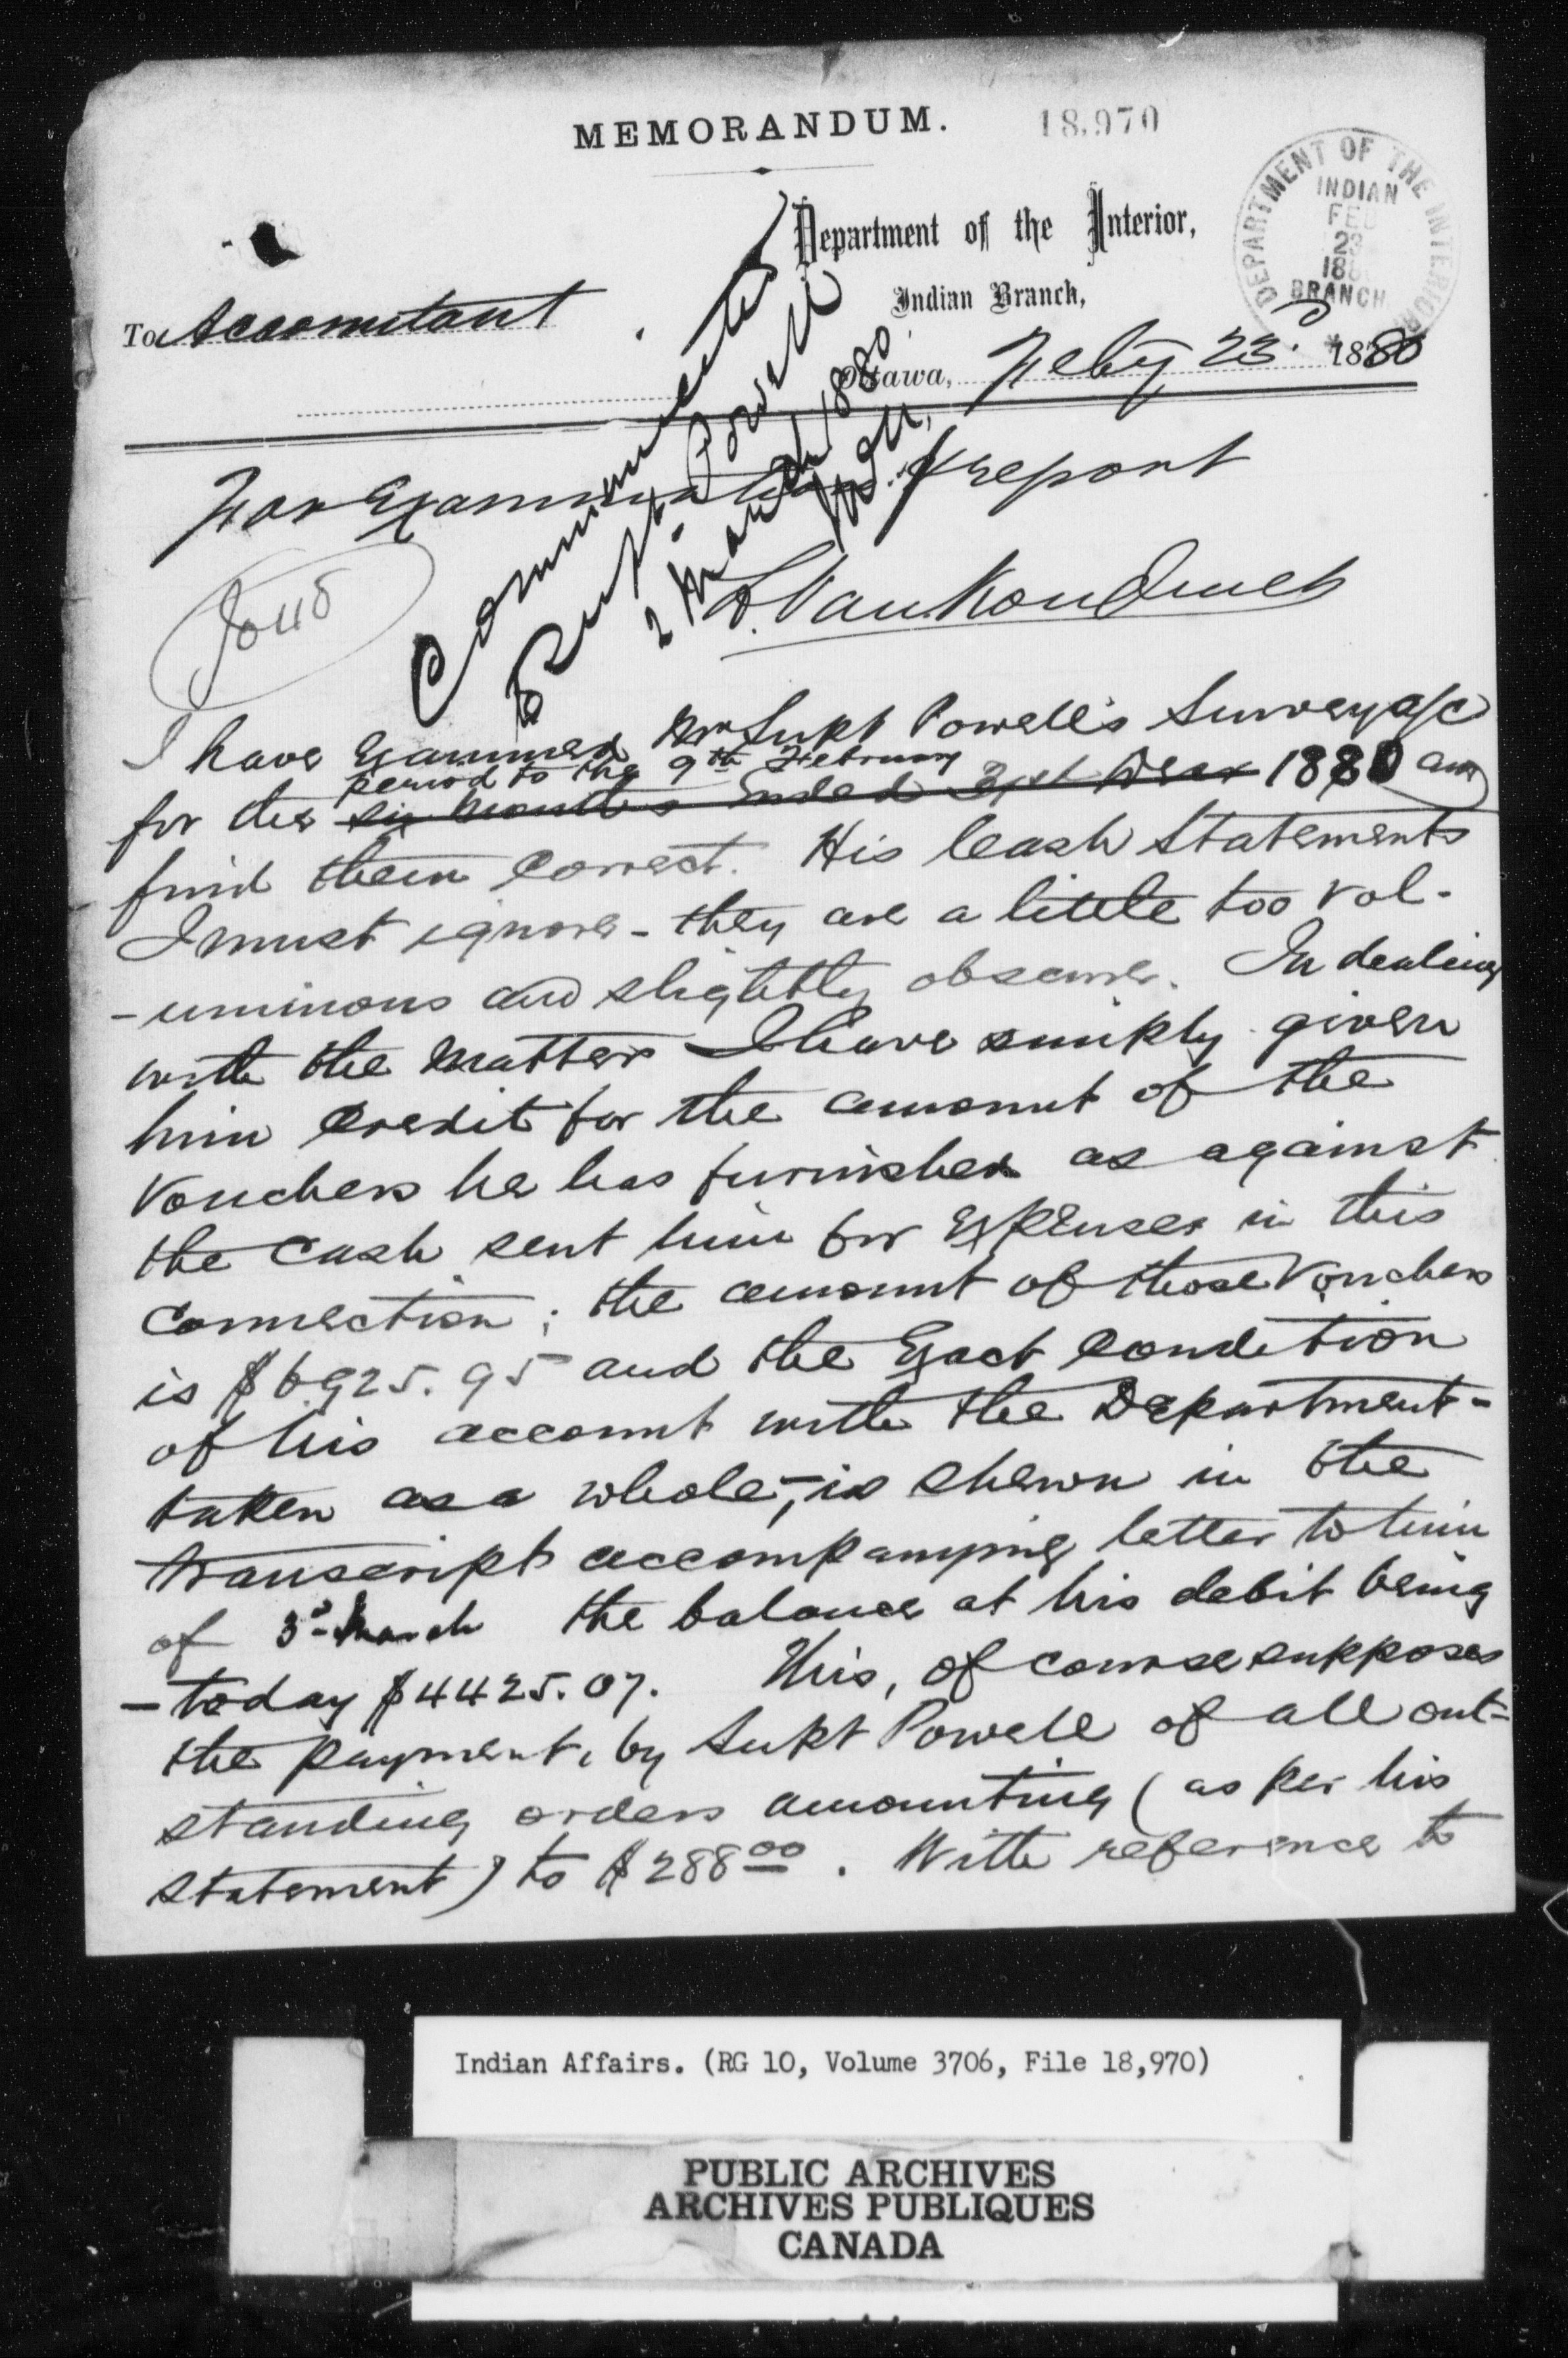 MEMORANDUM.
18,970
Department of the Interior,
Indian Branch,
DEPARTMENT OF THE INTERIOR
INDIAN
FEB
23
188
BRANCH
To Accountant
Ottawa, Feby 23d 1880
For Examination & report
L. VanKoughnet
Communicated
Supt. Powell
2 March 1880
I have Examined Mr Supt Powell's Survey a/c
period to the 9th February
for the six months Ended 31st Decr 1880 and
find them Correct. His Cash Statements
I must ignore - they are a little too vol-
-uminous and slightly obscure. In dealing
with the matter I have simply given
him Credit for the amount of the
Vouchers he has furnished as against
the Cash sent him for Expenses in this
Connection; the amount of those Vouchers
is $6925.95 and the Exact Condition
of his account with the Department -
taken as a whole -, is shewn in the
transcript accompanying letter to him
of 3d March the balance at his debit being
- today $4425.07. This, of course supposes
the payment, by Supt Powell of all out-
standing orders amounting (as per his
statement) to $288 00. With reference to
Indian Affairs. (RG 10, Volume 3706, File 18,970)
PUBLIC ARCHIVES
ARCHIVES PUBLIQUES
CANADA